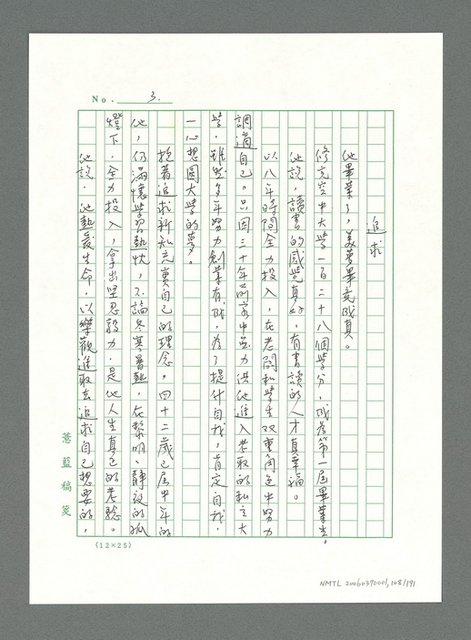 No. 3.
追求
他畢業了,美夢畢竟成真。
修完空中大學一百二十八個學分,成為第一屆畢業生。
他說,讀書的感覺真好,有書讀的人才真幸福。
以八年時間全力投入,在老闆和學生双重角色中努力
調適自己。只因三十年前家中無力供他進入考取的私立大
學,雖然多年努力創業有成,為了提升自我,肯定自我,
一心想圓大學的夢。
抱著追求新知充實自己的理念,四十二歲已屆中年的
他,仍滿懷學習熱忱,不論寒暑,在黎明、靜夜的孤
燈下,全力投入,拿出堅忍毅力,是他人生真正的考驗。
他說,他熱愛生命,以樂觀進取去追求自己想要的,
蒼藍稿箋
(12×25)
NMTL 20060390001,108/191